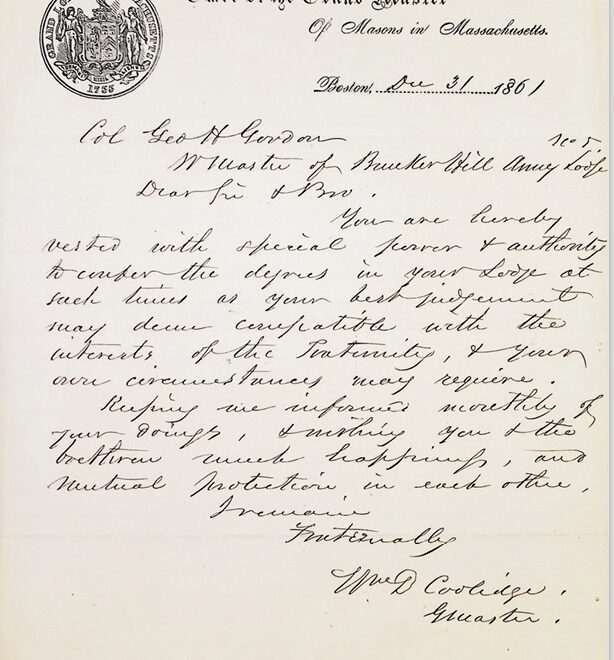 GRAND LODGE MASSACHUSETTS
1733
Office of the Grand Master
Of Masons in Massachusetts.
Boston, Dec 31 1861
Col Geo H Gordon
No 5.
W Master of Bunker Hill Army Lodge
Dear Sir & Bro.
You are hereby
vested with special power & authority
to confer the degrees in your Lodge at
such times as your best judgement
may deem compatible with the
interests of the Fraternity, & your
own circumstances may require.
Keeping me informed monthly of
your doings, & wishing you & the
brethren much happiness, and
mutual protection in each other,
I remain
Fraternally
Wm D Coolidge.
GMaster.